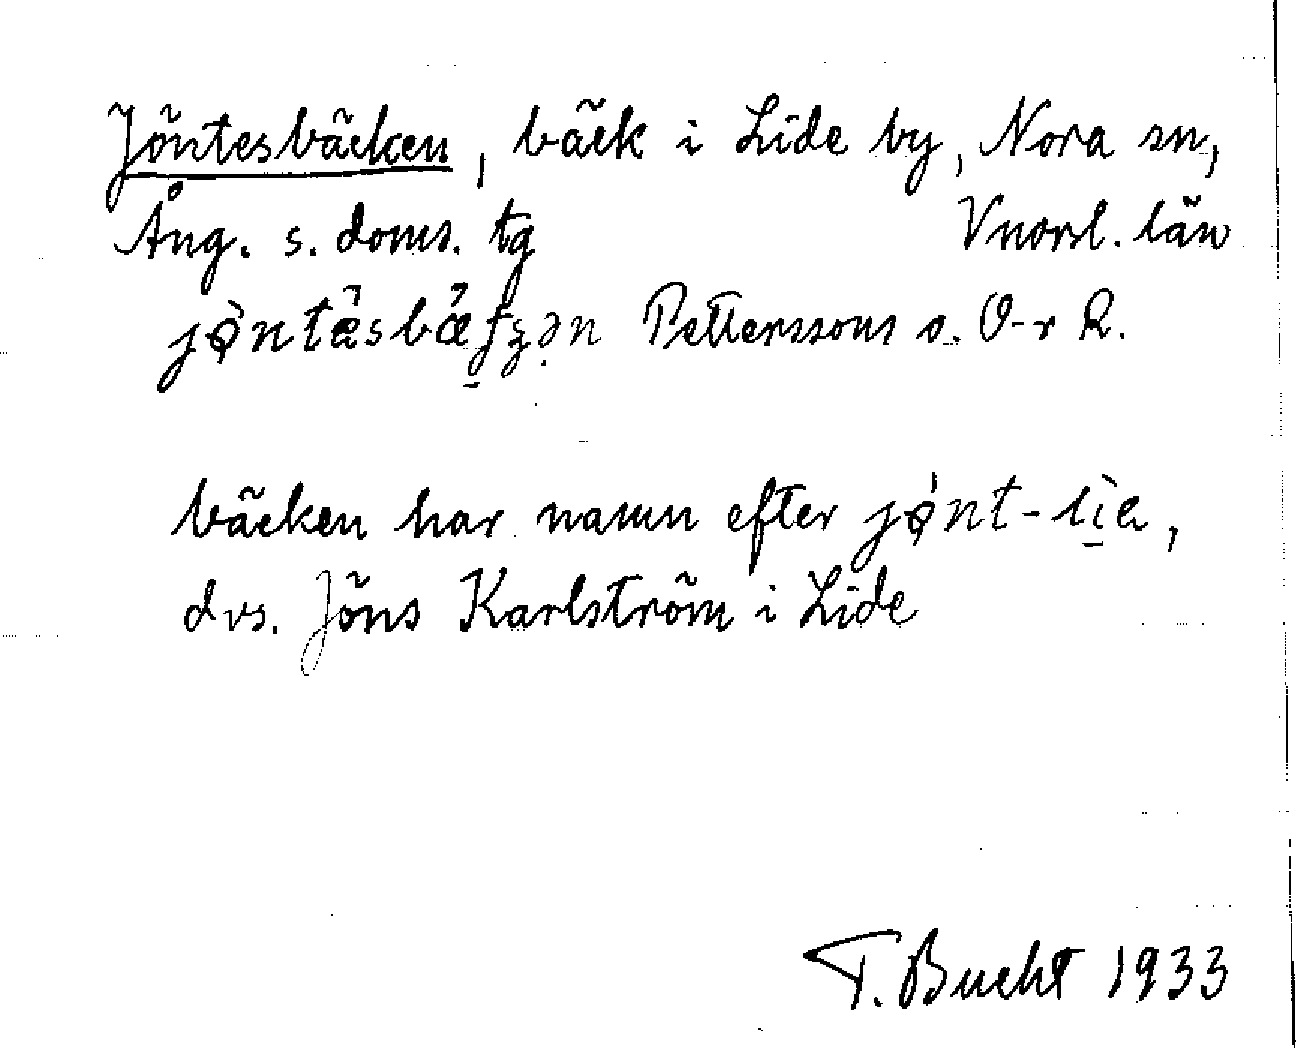 Jöntesbäcken, bäck i Lide by, Nora sn,
Ång. s. doms. tg Vnorrl. län
Petterssons o. O-r R.
bäcken har namn efter jønt-lìa,
dvs. Jöns Karlström i Lide
T. Bucht 1933